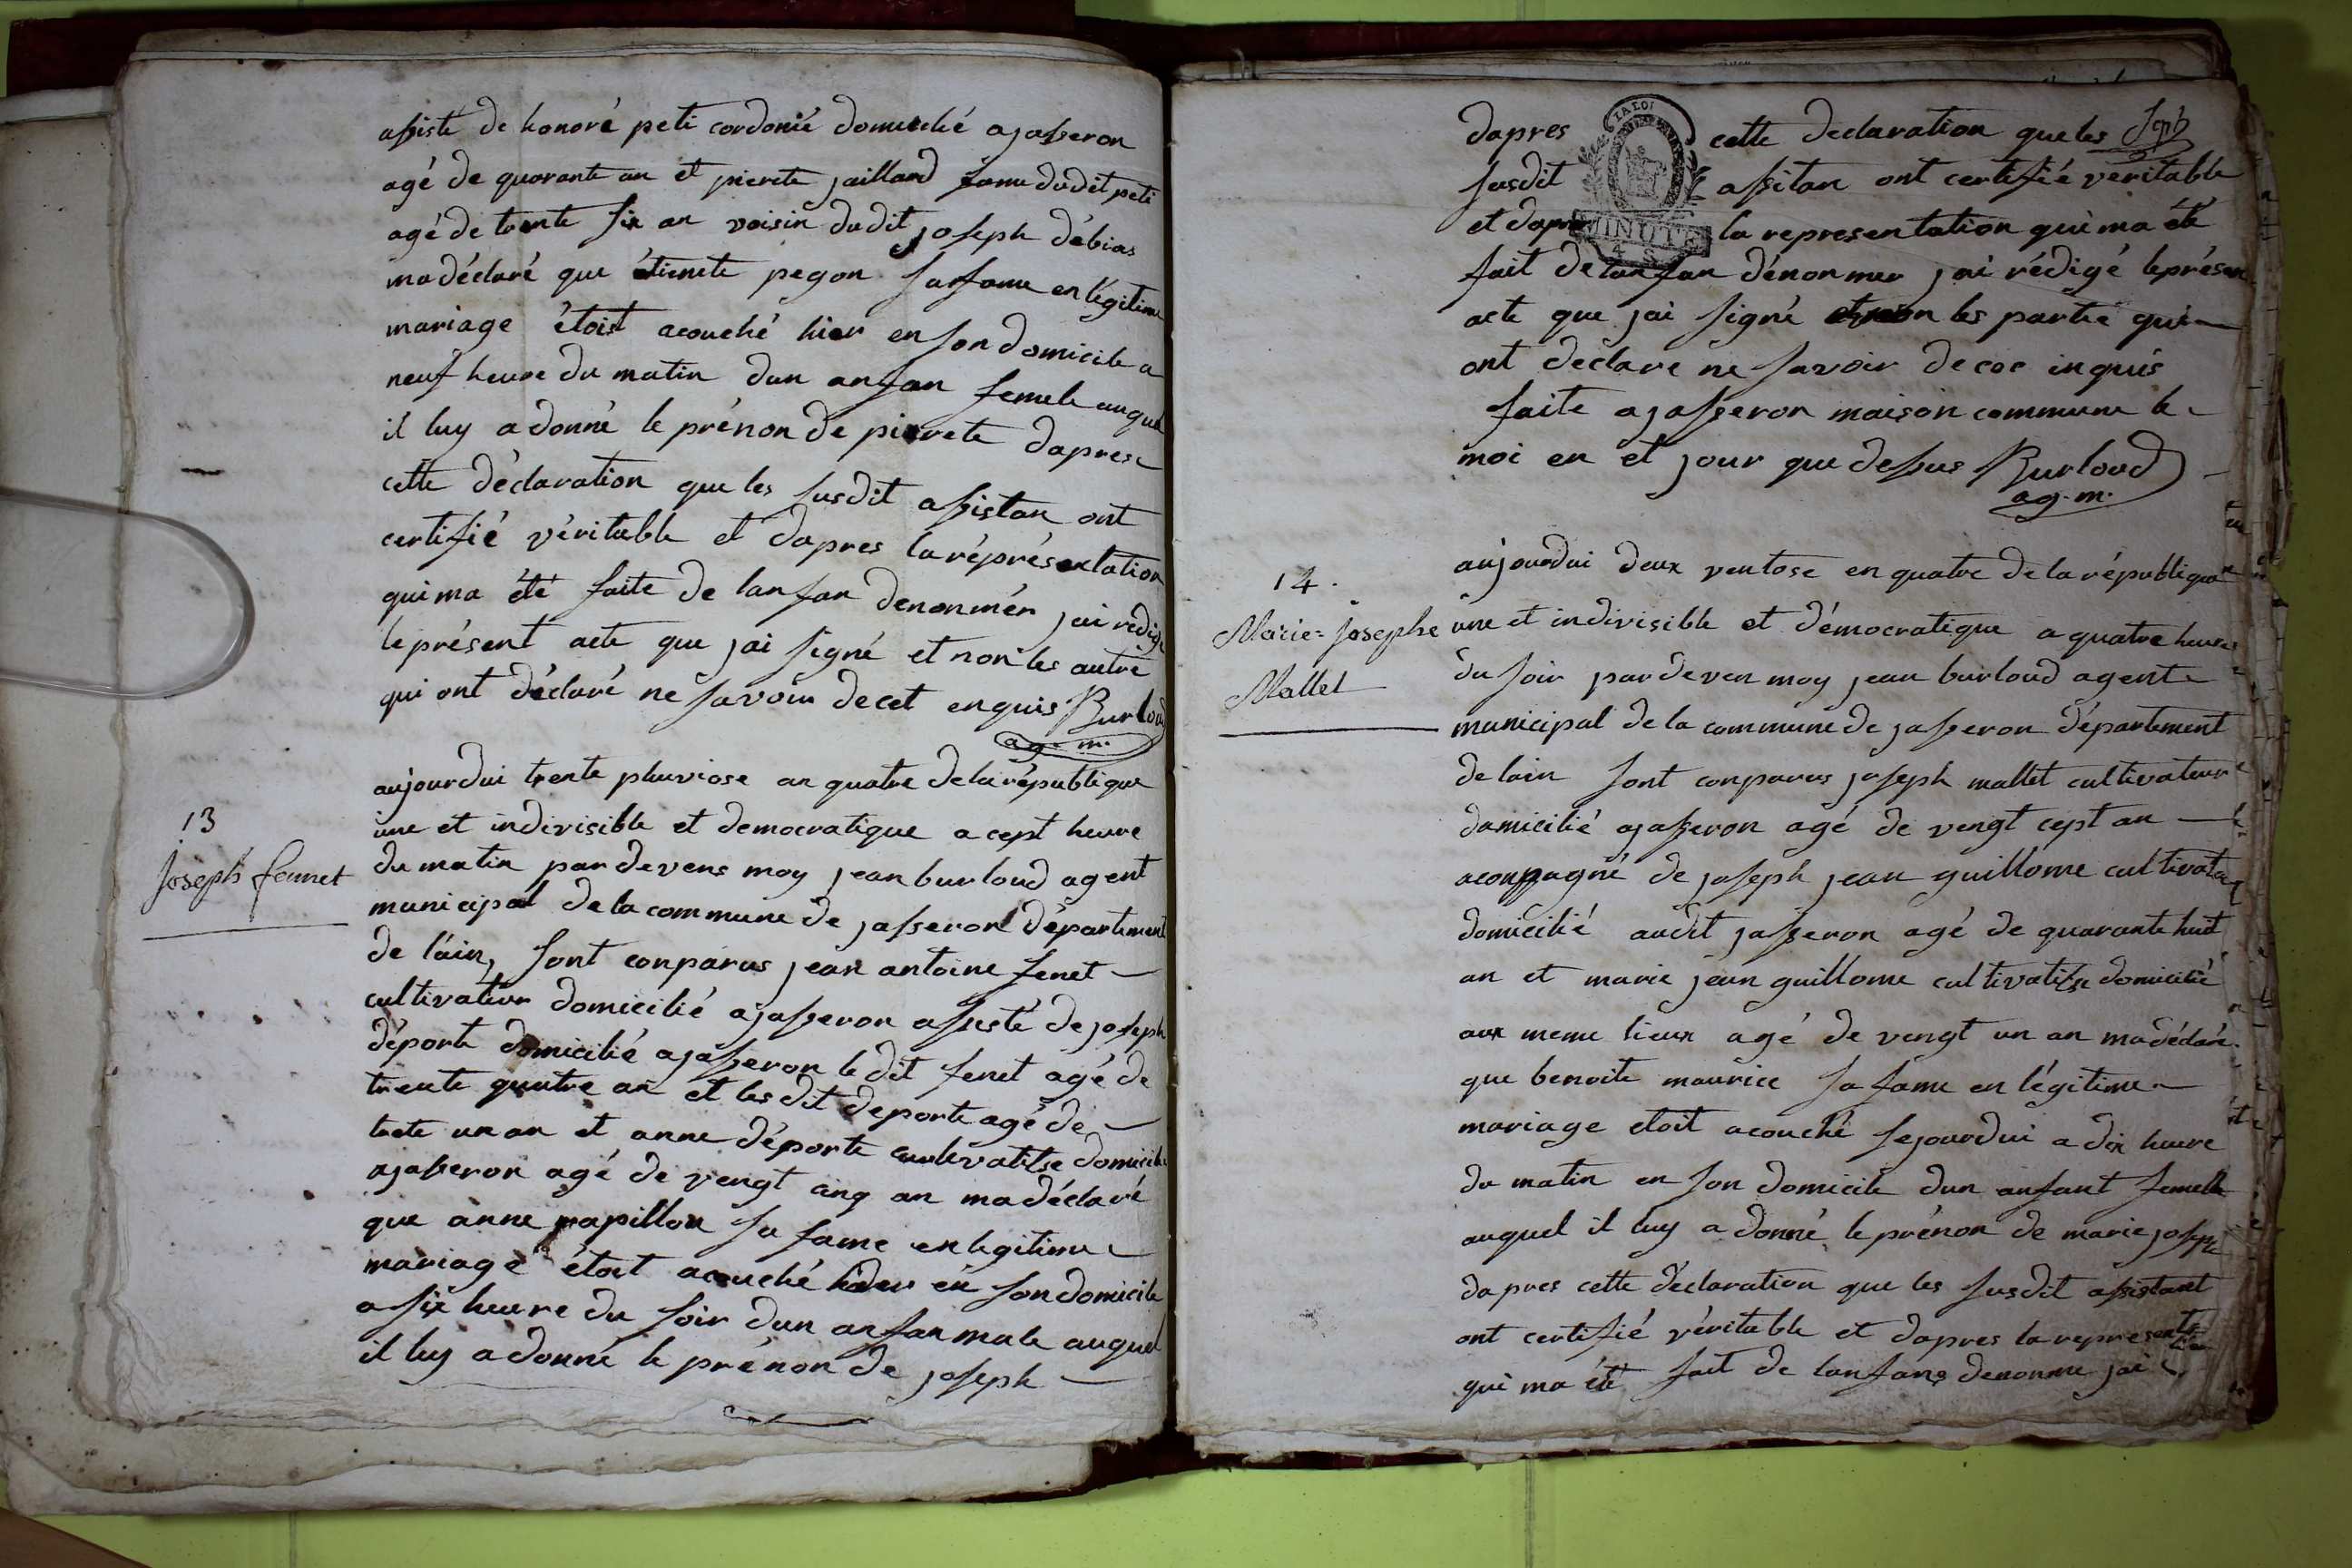 assisté de honoré peti cordonié domicilié a jasseron
agé de quarante an et pierete jaillard fame dudit peti
agé de trente six an voisin dudit joseph débias
ma déclaré que étienete pegon sa fame en légitime
mariage étoist acouché hier en son domicile a
neuf heure du matin dun anfan femele auquel
il luy a donné le prénon de pierete dapres
cette déclaration que les susdit assistan ont
certifié véritable et dapres la réprésentation
qui ma été faite de lanfan denonmér jai rédigé
le présent acte que jai signé et non les autre
qui ont déclaré ne savoir de cet enquis Burloud
ag. m.
13
joseph fennet
aujourdui trente pluviose an quatre de la république
une et indivisible et democratique a cept heure
du matin par devens moy jean burloud agent
municipal de la commune de jasseron département
de l'ain, sont conparus jean antoine fenet
cultivateur domicilié a jasseron assisté de joseph
déporte domicilié a jasseron le dit fenet agé de
trente quatre an et lesdit deporte agé de
trete un an et anne déporte cultivatrise domicilié
a jasseron agé de vengt cinq an ma déclaré
que anne papillon sa fame en legitime
mariage étoit acouché hier en son domicile
a six heure du soir dun anfan male auquel
il luy a donné le prénon de joseph
dapres cette declaration que les
susdit assitan ont certifié veritable
et dapres la representation qui ma été
MINUTE
fait de lanfan dénonmer jai rédigé le présen
acte que jai signé et non les partie qui
ont declare ne savoir de ce inquis
faite a jasseron maison commune le
moi en et jour que dessus Burloud
ag. m.
14.
Marie-Josephe
Mallet
aujourdui deux ventose en quatre de la république
une et indivisible et démocratique a quatre heure
du soir par deven moy jean burloud agent
municipal de la commune de jasseron département
de lain sont conparus joseph mallet cultivateur
domicilié a jasseron agé de vengt cept an
aconpagné de joseph jean guillome cultivateur
domicilié audit jasseron agé de quarante huit
an et marie jean guillome cultivatrise domicilié
aux meme lieux agé de vengt un an ma déclaré
que benoite maurice sa fame en légitime
mariage etoit acouché sejourdui a dix heure
du matin en son domicile dun anfant femelle
auquel il luy a donné le prénon de marie joseph
dapres cette déclaration que les susdit assistant
ont certifié véritable et dapres la representation
qui ma été fait de lanfans denonme jai